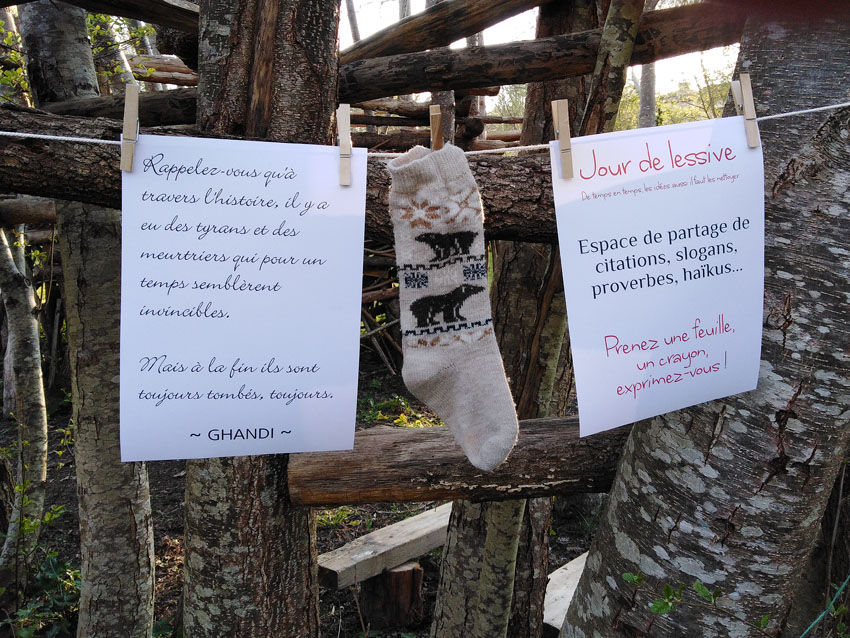 Rappelez-vous qu'à
travers l'histoire, il y a
eu des tyrans et des
meurtriers qui pour un
temps semblèrent
invincibles.
Mais à la fin ils sont
toujours tombés, toujours.
~ GHANDI ~
Jour de lessive
De temps en temps, les idées aussi il faut les nettoyer
Espace de partage de
citations, slogans,
proverbes, haïkus...
Prenez une feuille,
un crayon,
exprimez-vous !